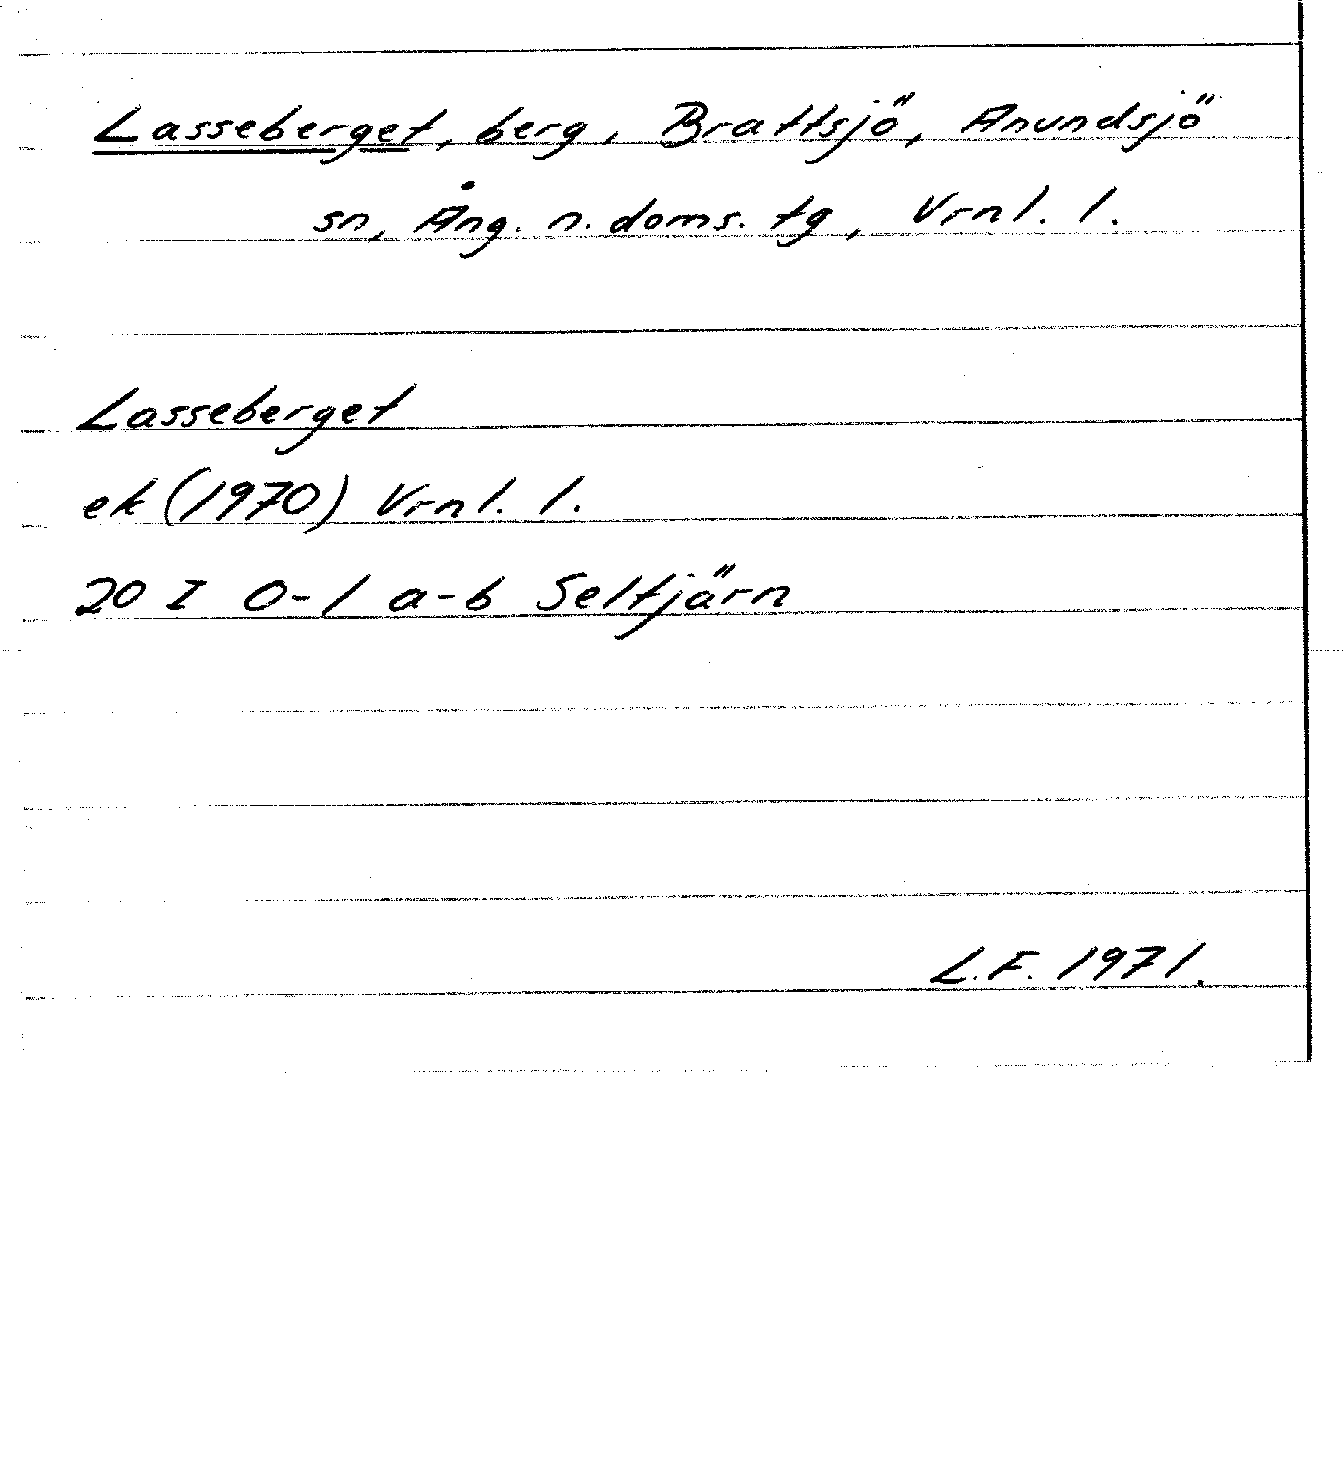 Lasseberget, berg, Brattsjö, Anundsjö
sn, Ång. n. doms. tg, Vrnl. l.
Lasseberget
ek (1970) Vrnl. l.
20 I 0-1 a-b Seltjärn
L.F. 1971.